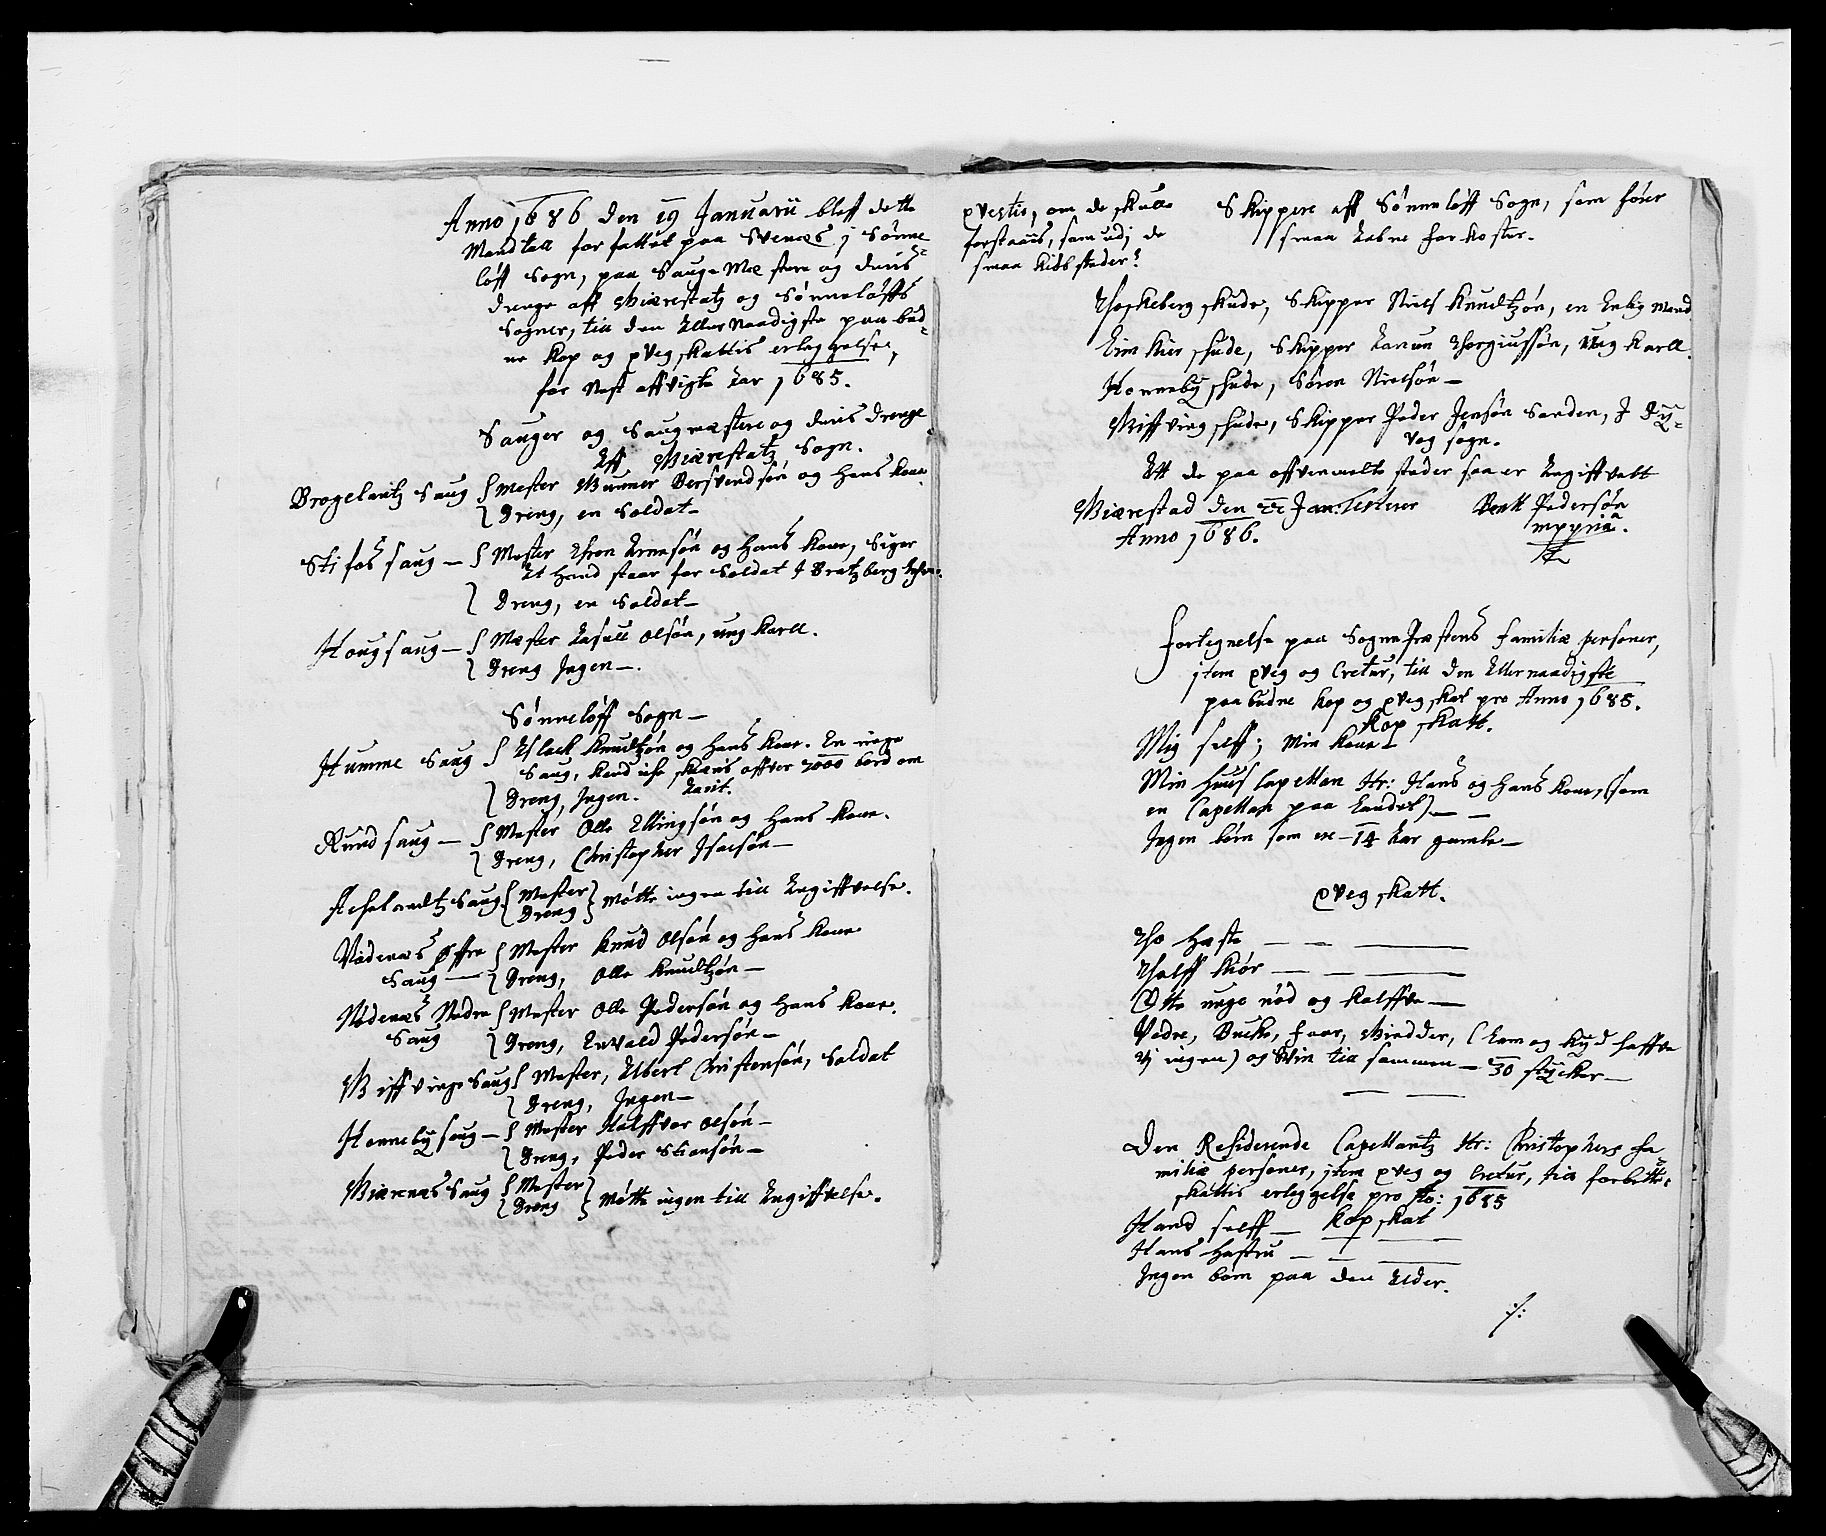 Anno 1686 den 19 Januarii bleff dette
Mandtall forfattet paa Svenes j Sønne-
løff Sogn, paa Saugemestere og deris
drenge aff Giærestatz og Sønneløffs
Sogner, till den Allernaadigste paabud-
ne kop og qvegskattis erleggelse,
for nest affvigte Aar 1685.
Sauger og Saugmestere og deris drenge
Aff Giærestatz Sogn.
Brogelantz Saug Mester Gunner Bersvendsøn og hans kone
Dreng, en Soldat
Stifos saug Mester Aron Arnesøn og hans kone, Siger
At hand staar for Soldat J Bratzberg
Dreng, en Soldat
Hougsaug Mester Lasull Olsøn, ung karll.
Dreng Jngen.
Sønneløff Sogn
Humme Saug Aslack knudtzøn og hans kone. En ringe
Saug, kand iche skiæris offver 2000 bord om
Dreng, Jngen. Aarit.
Rund saug Mester Olle Ellingsøn og hans kone.
Dreng, Christopher Jsacsøn
Aschelandtz Saug Mester Dreng møtte ingen till Angiffvelse.
Nødenæs Øffre Mester knud Olsøn og hans kone
Saug Dreng, Olle knudtzøn
Nødenæs Nedre Mester Olle Pedersøn og hans kone.
Saug Dreng, Envald Pedersøn
Giffvinge Saug Mester, Albert Christensøn, Soldat
Dreng, Jngen
Honneby saug Mester Halffvor Olsøn
Dreng, Peder Stiansøn
Giærenes Saug Mester Dreng Møtte ingen till Angiffvelse.
qvestis, om de skulle
forstaaiis, som udj de
smaa kiøbsteder?
Skippere aff Sønneløff Sogn, som fører
smaa Aabne farkoster.
Torkeberg skude, Skipper Niels knudtzøn, en Enlig Mand
Eimkier skude, Skipper Torgiussøn, Ung karll.
Honneby skude, Søren Nielsøn
Giffving skude, Skipper Peder Jensøn Sanden, J Dy-
vog sogn.
Att de paa offvermelte steder saa er Angiffvett
Giærestad den 22 Jan: Testerer Bent Pedersøn
Anno 1686. mppria.
Fortegnelse paa SognePræstens familiæ personer,
jtem qveg og Cretur, till den Allernaadigste
paabudne kop og qvegskat pro Anno 1685.
kop skatt.
Mig selff; Min kone
Min huus Capellan Hr: Hans og hans kone, (som
en Capellan paa Landet)
Jngen børn som er 14 Aar gamle
qveg skatt.
To heste
Tolff kiør
Otte unge nød og kalffve
Vedre, Bucke, faar, Gieder, (Lam og kid haffve
vj ingen) og Svin till sammen 30 stycker
Den Residerende Capellantz Hr: Christophers fa
miliæ personer, jtem qveg og Cretur, till forbette
skattis erleggelse pro Ao: 1685
kop skat
Hand selff 1
Hans hustru 1
Jngen børn paa den Alder.
./: